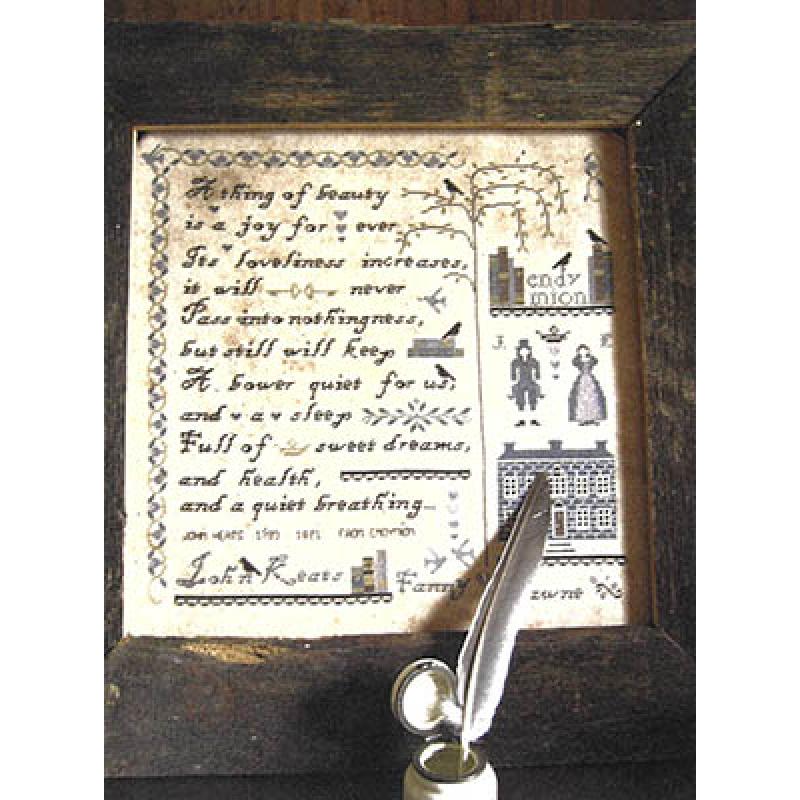 A thing of beauty
is a joy for ever
Its loveliness increases,
it will never
Pass into nothingness,
but still will keep
A bower quiet for us,
and a sleep
Full of sweet dreams,
and health,
and a quiet breathing...
JOHN KEATS 1795 1821 FROM ENDYMION
John Keats
Fanny
endy
mion
J.